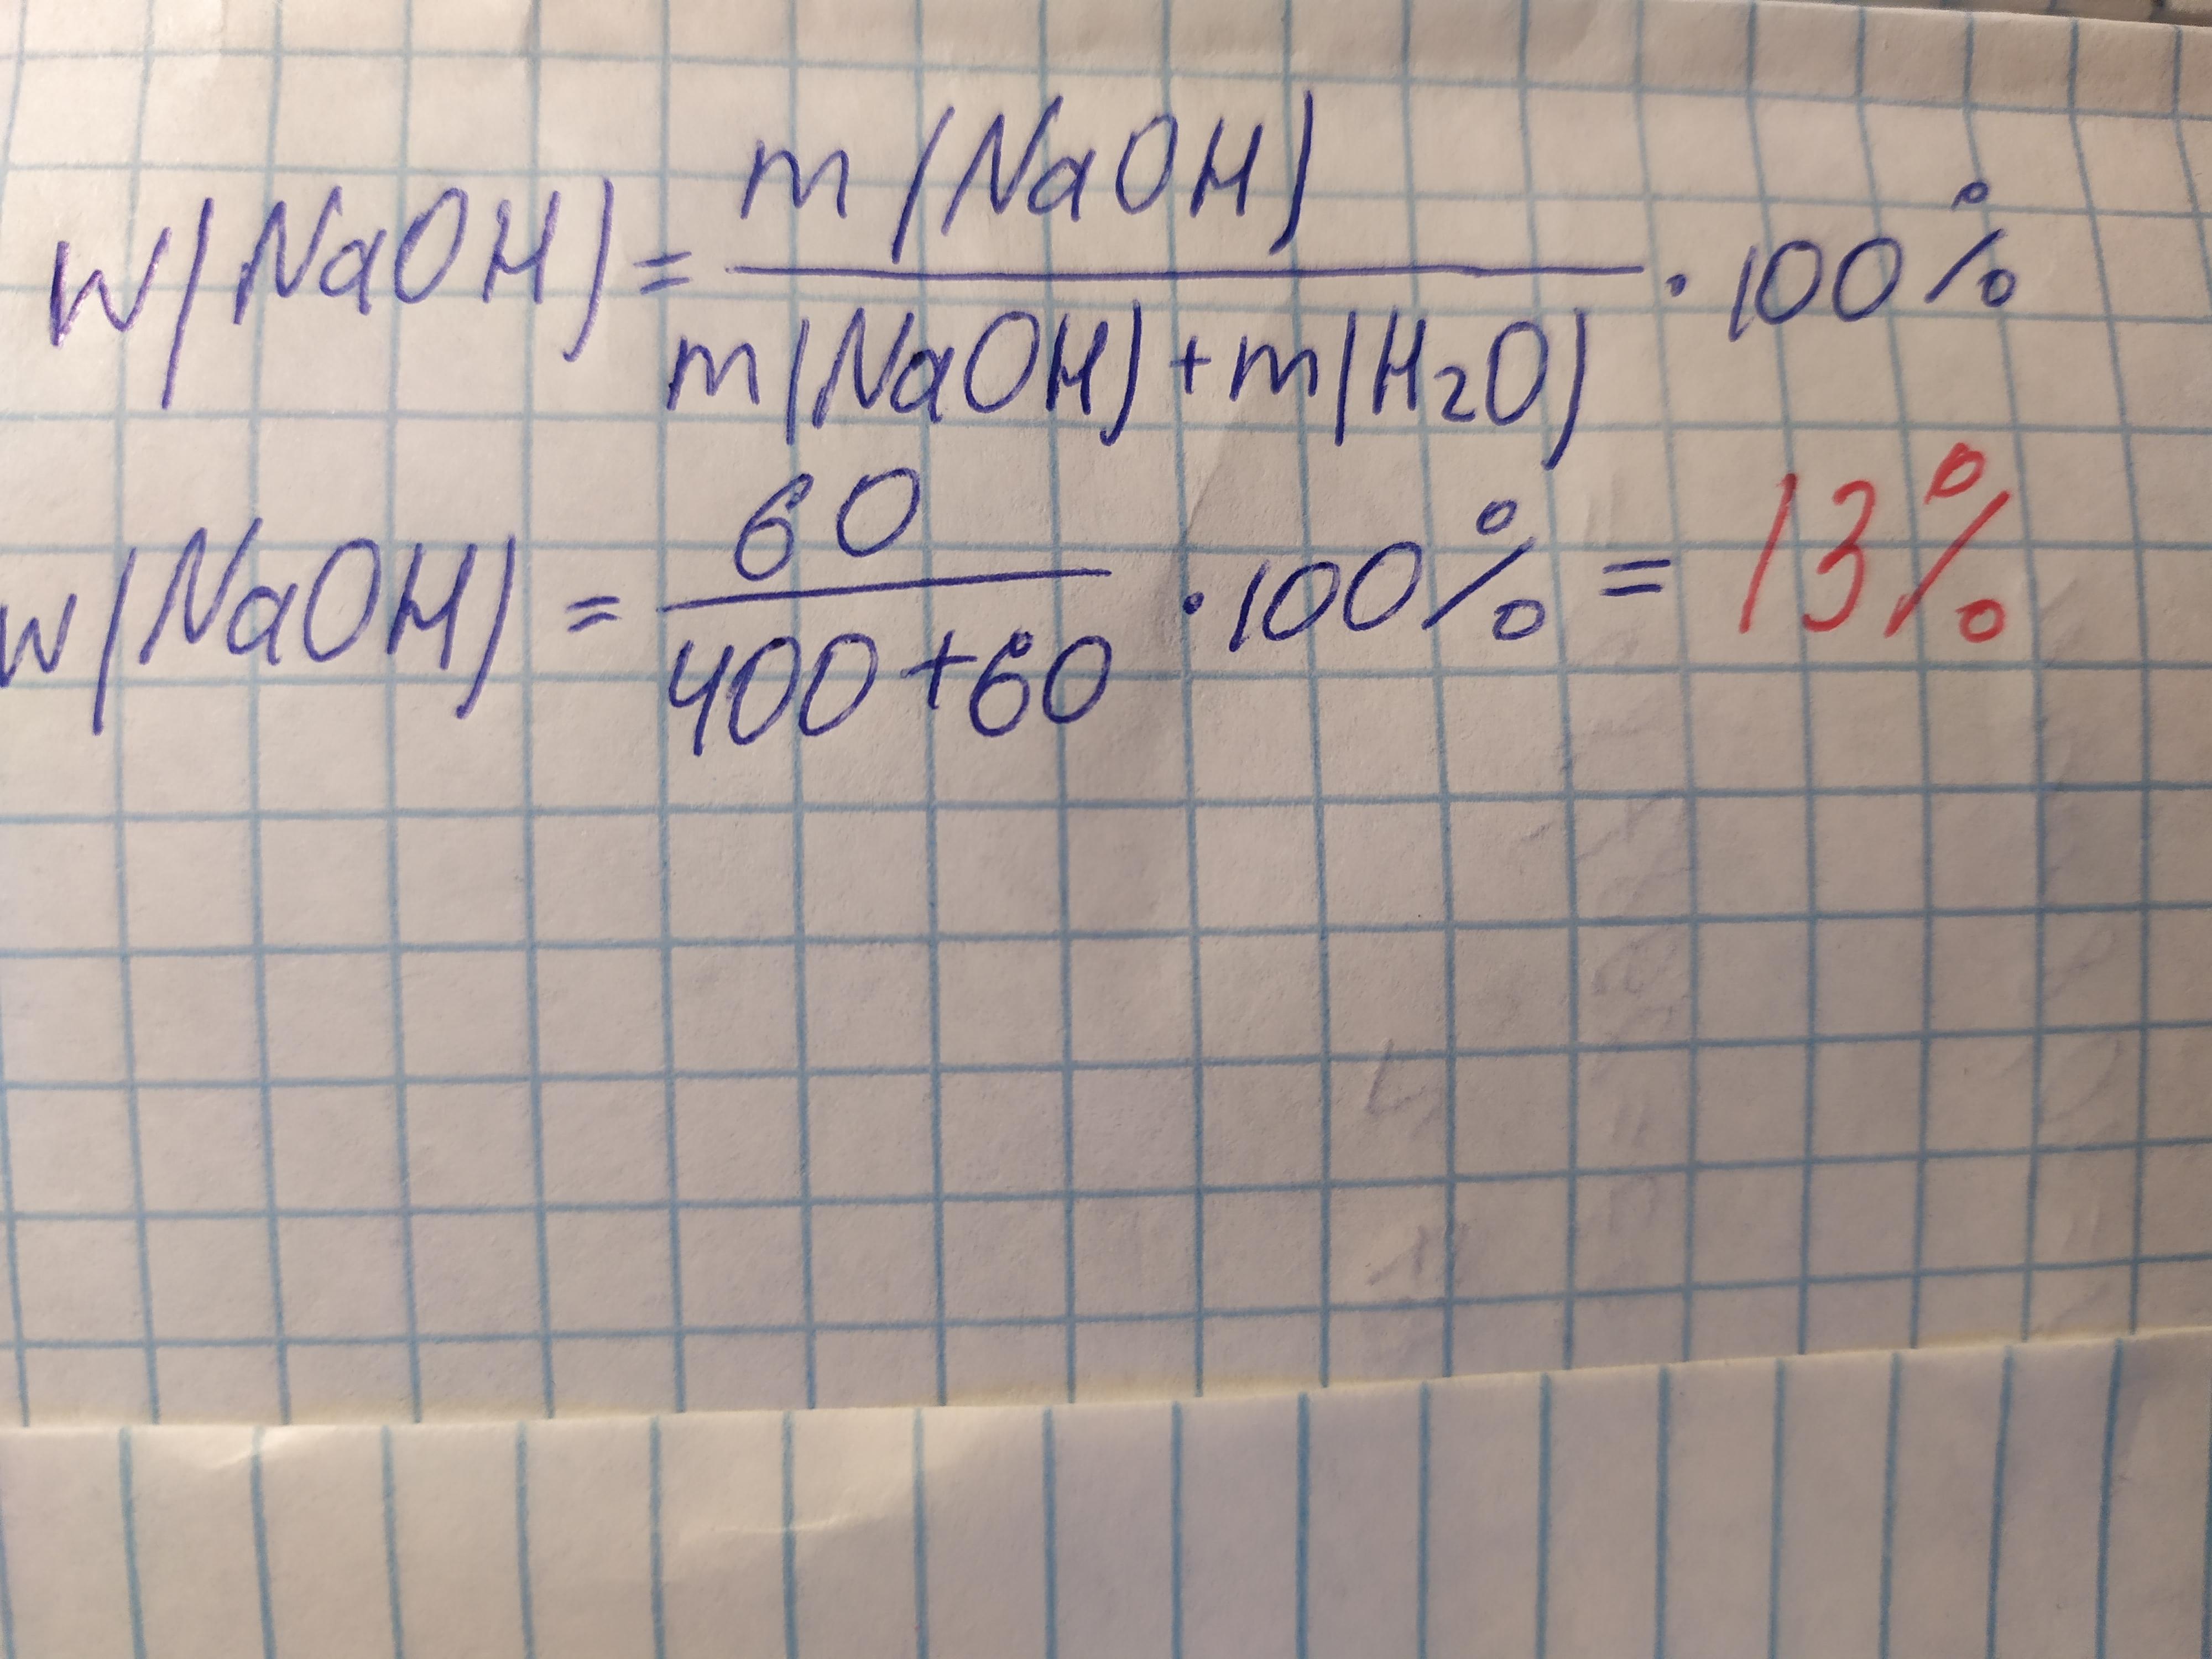 w(NaOH) = m(NaOH) / m(NaOH) + m(H2O) · 100%
w(NaOH) = 60 / 400 + 60 · 100% = 13%